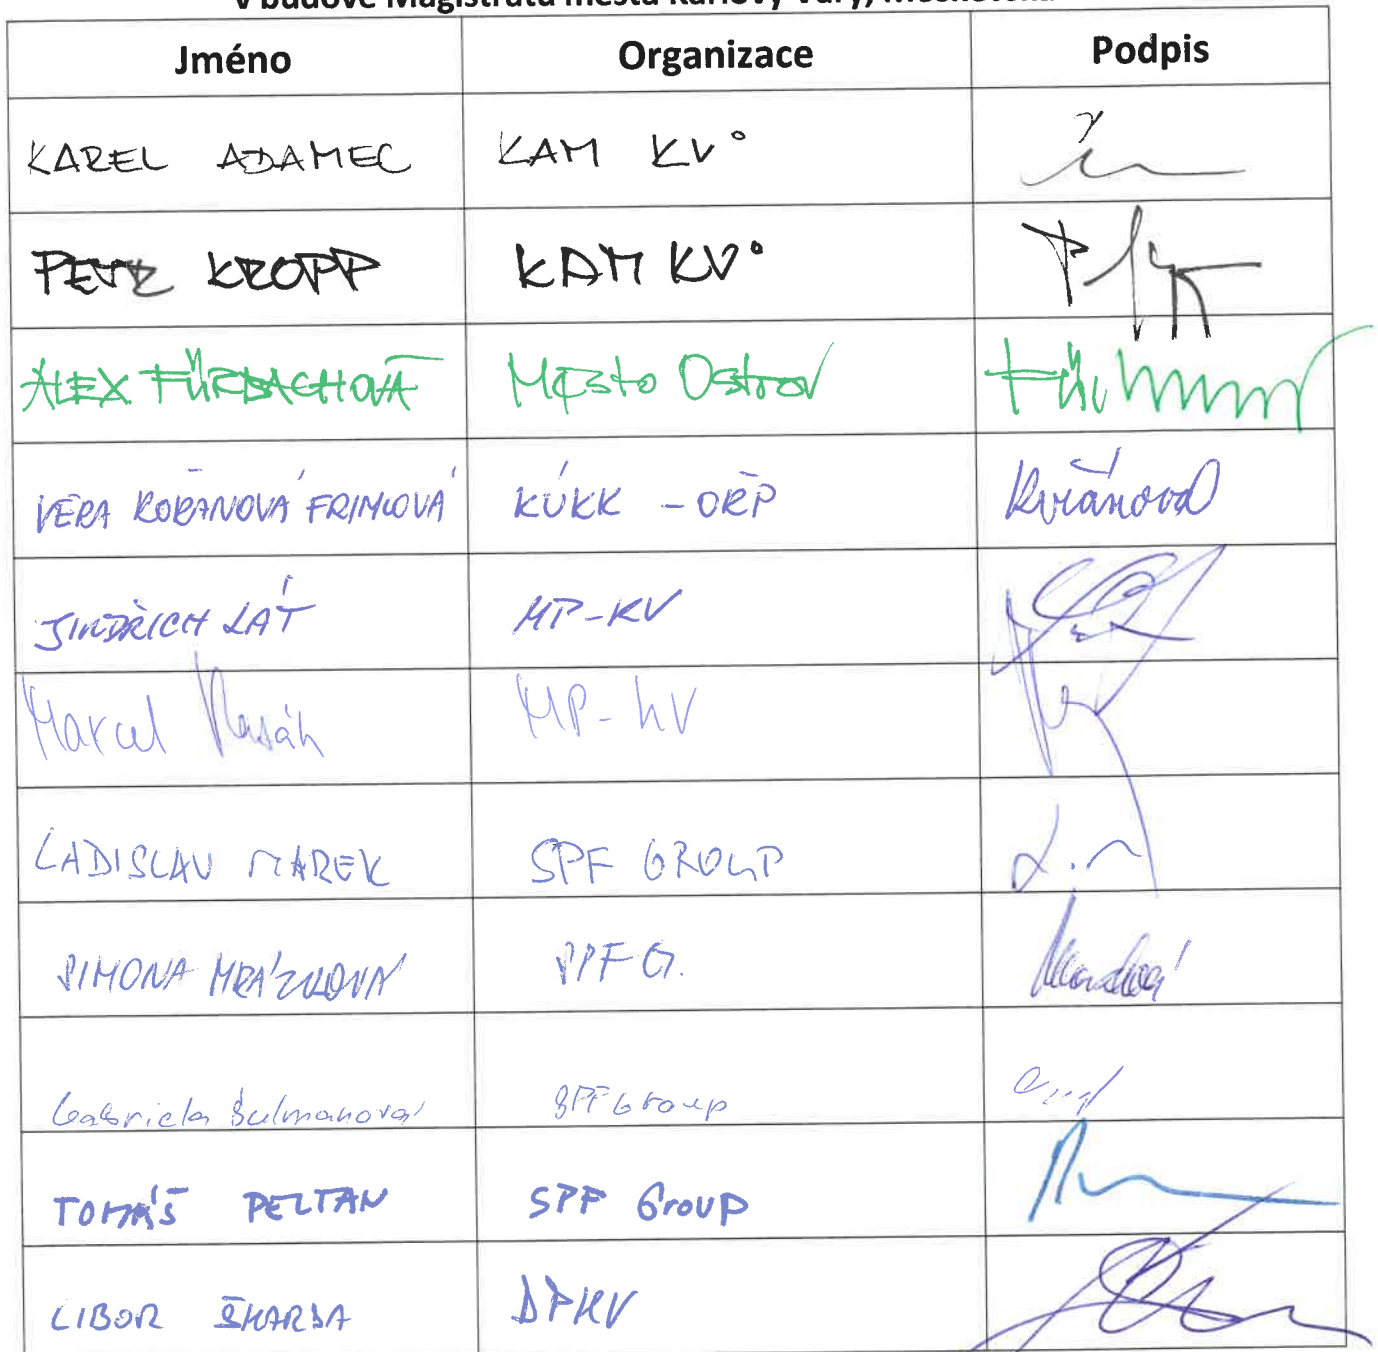 v budově Magistrátu města Karlovy Vary, Moskevská
Jméno Organizace Podpis
KAREL ADAMEC KAM KV°
PETR KROPP KAM KV°
ALEX FÜRBACHOVÁ Město Ostrov
VĚRA KOŘANOVÁ FRIMLOVÁ KÚKK - ORP Kořánová
JINDŘICH LÁT MP-KV
Marcel MP-KV
LADISLAV MAREK SPF GROUP
SIMONA MRÁZKOVÁ SPF G.
Gabriela Šulmanová SPF Group
TOMÁŠ PELTAN SPF Group
LIBOR ŠKARDA DPKV